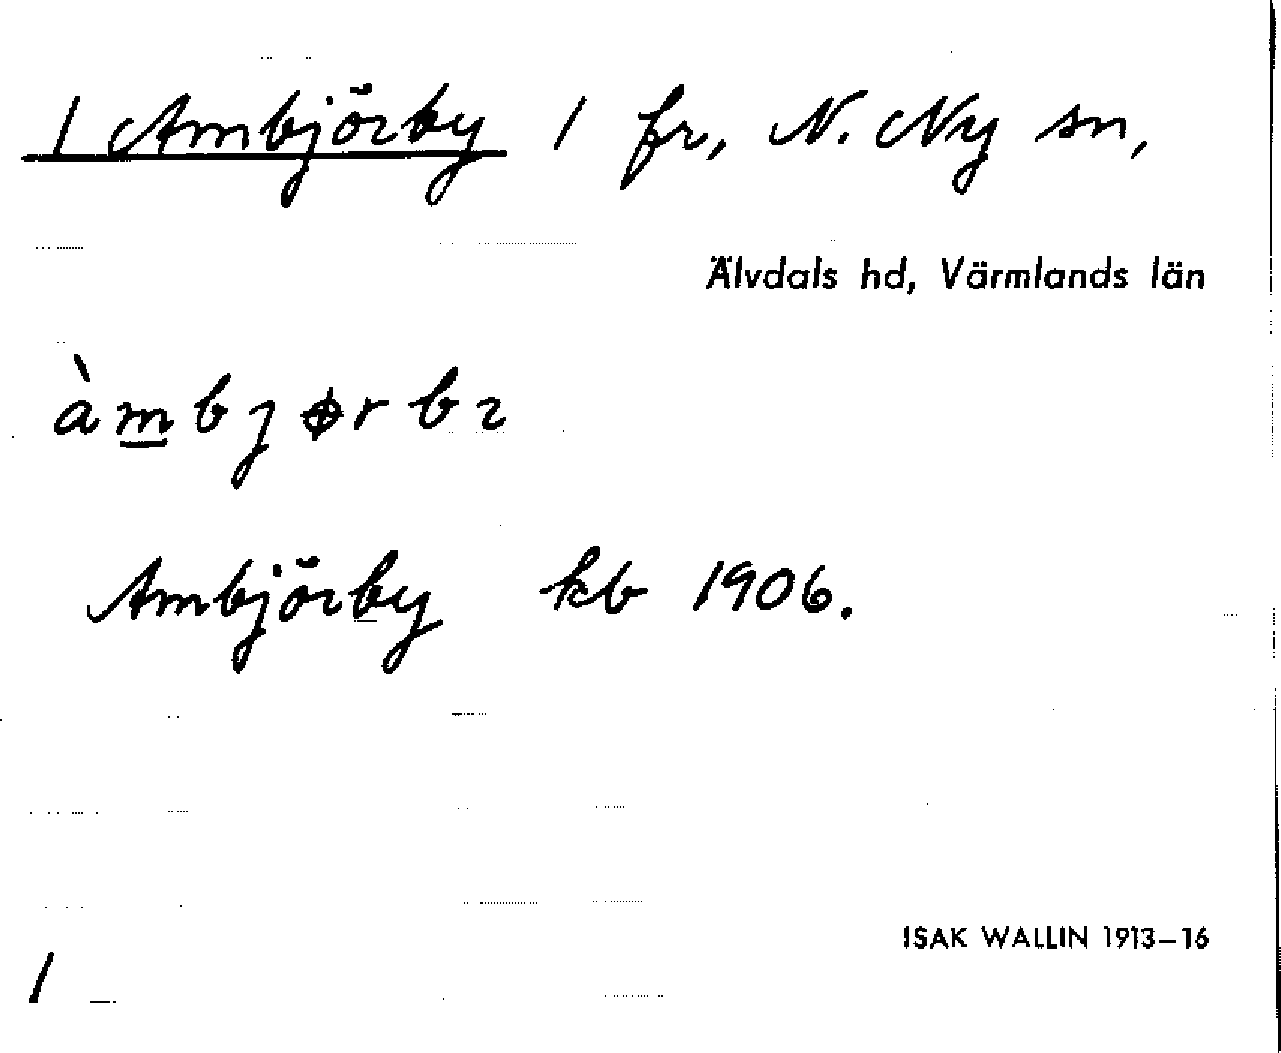 1 Ambjörby 1 fr, N. Ny sn,
Älvdals hd, Värmlands län
àm̲bjɵrbɩ
Ambjörby kb 1906.
ISAK WALLIN 1913–16
1